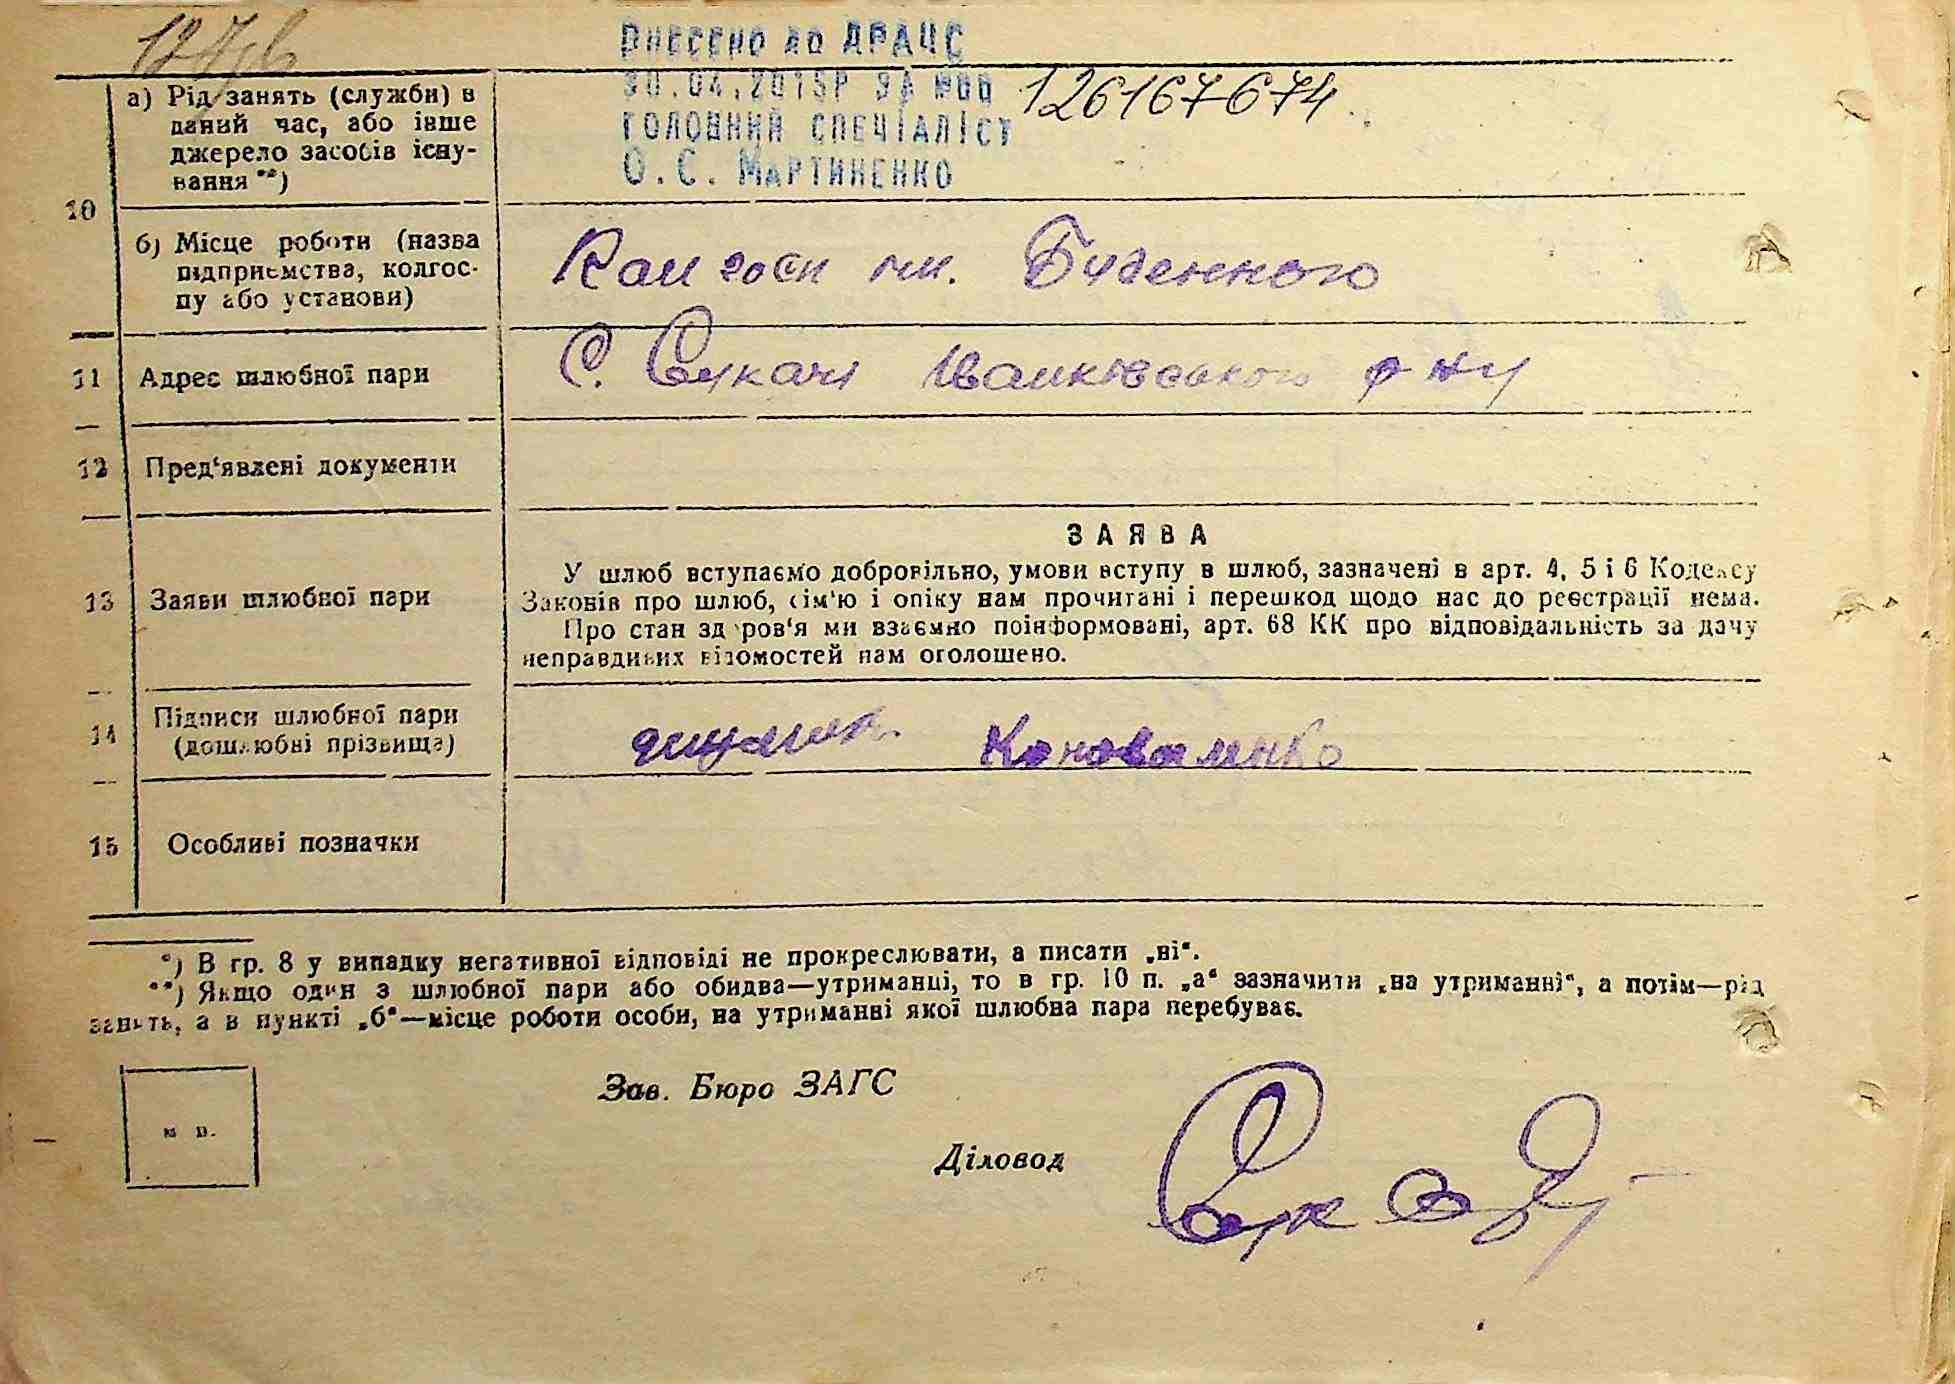 ВНЕСЕНО до ДРАЦС
30.04.2015Р ЗА №00 126167674
ГОЛОВНИЙ СПЕЦІАЛІСТ
О.С. МАРТИНЕНКО
10
а) Рід занять (служби) в
даний час, або інше
джерело засобів існу-
вання **)
б) Місце роботи (назва
підприємства, колгос-
пу або установи)
Колгосп ім. Буденного
11 Адрес шлюбної пари
С. Сукачі Іванківського р-ну
12 Пред'явлені документи
13 Заяви шлюбної пари
ЗАЯВА
У шлюб вступаємо добровільно, умови вступу в шлюб, зазначені в арт. 4, 5 і 6 Кодексу
Законів про шлюб, сім'ю і опіку нам прочитані і перешкод щодо нас до реєстрації нема.
Про стан здоров'я ми взаємно поінформовані, арт. 68 КК про відповідальність за дачу
неправдивих відомостей нам оголошено.
14 Підписи шлюбної пари
(дошлюбні прізвища)
Коноваленко
15 Особливі позначки
*) В гр. 8 у випадку негативної відповіді не прокреслювати, а писати „ні“.
**) Якщо один з шлюбної пари або обидва—утриманці, то в гр. 10 п. „а“ зазначити „на утриманні“, а потім—рід
занять, а в пункті „б“—місце роботи особи, на утриманні якої шлюбна пара перебуває.
м п.
Зав. Бюро ЗАГС
Діловод